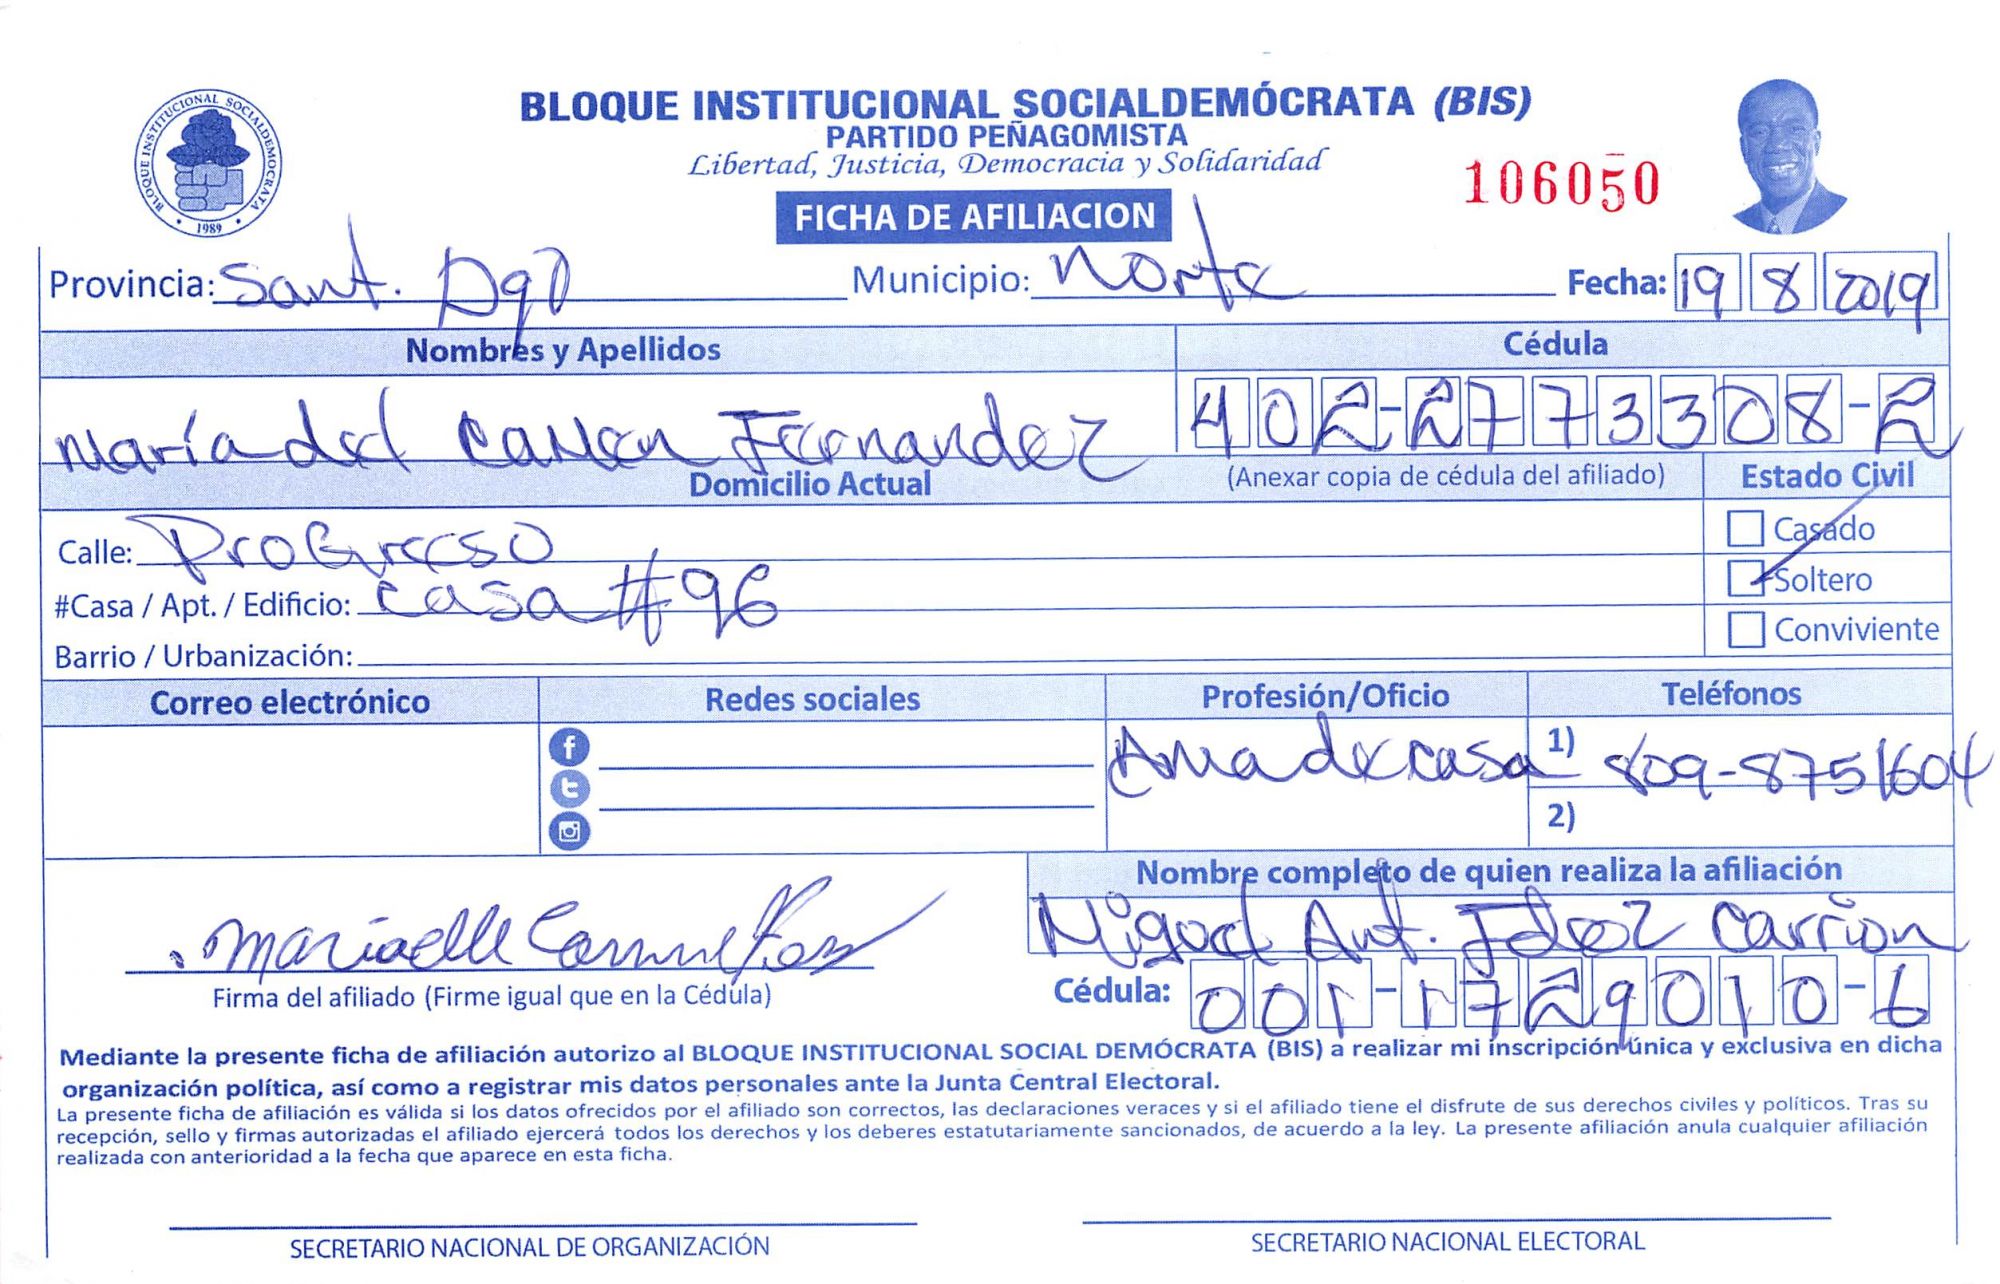 BLOQUE INSTITUCIONAL SOCIALDEMOCRATA
1989
BLOQUE INSTITUCIONAL SOCIALDEMÓCRATA (BIS)
PARTIDO PEÑAGOMISTA
Libertad, Justicia, Democracia y Solidaridad
106050
FICHA DE AFILIACION
Provincia: Sant. Dgo Municipio: Norte Fecha: 19 8 2019
Nombres y Apellidos Cédula
María del Carmen Fernandez 402-2773308-2
Domicilio Actual (Anexar copia de cédula del afiliado) Estado Civil
Calle: Progreso Casado
#Casa / Apt. / Edificio: casa #96 Soltero
Barrio / Urbanización: Conviviente
Correo electrónico Redes sociales Profesión/Oficio Teléfonos
Ama de casa 1) 809-8751604
2)
Nombre completo de quien realiza la afiliación
Miguel Ant. Fdez Carrion
Firma del afiliado (Firme igual que en la Cédula) Cédula: 001-1729010-6
Mediante la presente ficha de afiliación autorizo al BLOQUE INSTITUCIONAL SOCIAL DEMÓCRATA (BIS) a realizar mi inscripción única y exclusiva en dicha
organización política, así como a registrar mis datos personales ante la Junta Central Electoral.
La presente ficha de afiliación es válida si los datos ofrecidos por el afiliado son correctos, las declaraciones veraces y si el afiliado tiene el disfrute de sus derechos civiles y políticos. Tras su
recepción, sello y firmas autorizadas el afiliado ejercerá todos los derechos y los deberes estatutariamente sancionados, de acuerdo a la ley. La presente afiliación anula cualquier afiliación
realizada con anterioridad a la fecha que aparece en esta ficha.
SECRETARIO NACIONAL DE ORGANIZACIÓN SECRETARIO NACIONAL ELECTORAL